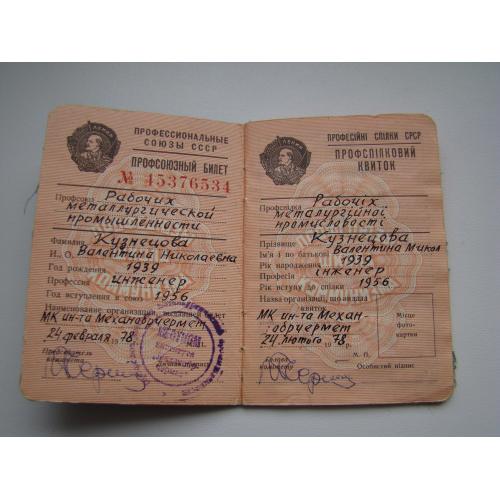 ПРОФЕССИОНАЛЬНЫЕ
СОЮЗЫ СССР
ПРОФСОЮЗНЫЙ БИЛЕТ
№ 45376534
Профсоюз Рабочих
металлургической
промышленности
Фамилия Кузнецова
И., О. Валентина Николаевна
Год рождения 1939
Профессия инженер
Год вступления в союз 1956
Наименование организации, выдавшей билет
МК ин-та Механобрчермет
24 февраля 1978.
Председатель
комитета
ПРОФЕСІЙНІ СПІЛКИ СРСР
ПРОФСПІЛКОВИЙ
КВИТОК
Профспілка Рабочіх
металургійної
промисловості
Прізвище Кузнецова
Ім'я і по батькові Валентина Микол
Рік народження 1939
Професія інженер
Рік вступу в спілки 1956
Назва організації, що видала
квиток
МК ин-та Механ
обрчермет
24 лютого 1978 р.
Місце
фото-
картки
М. П.
Голова
комітету
Особистий підпис